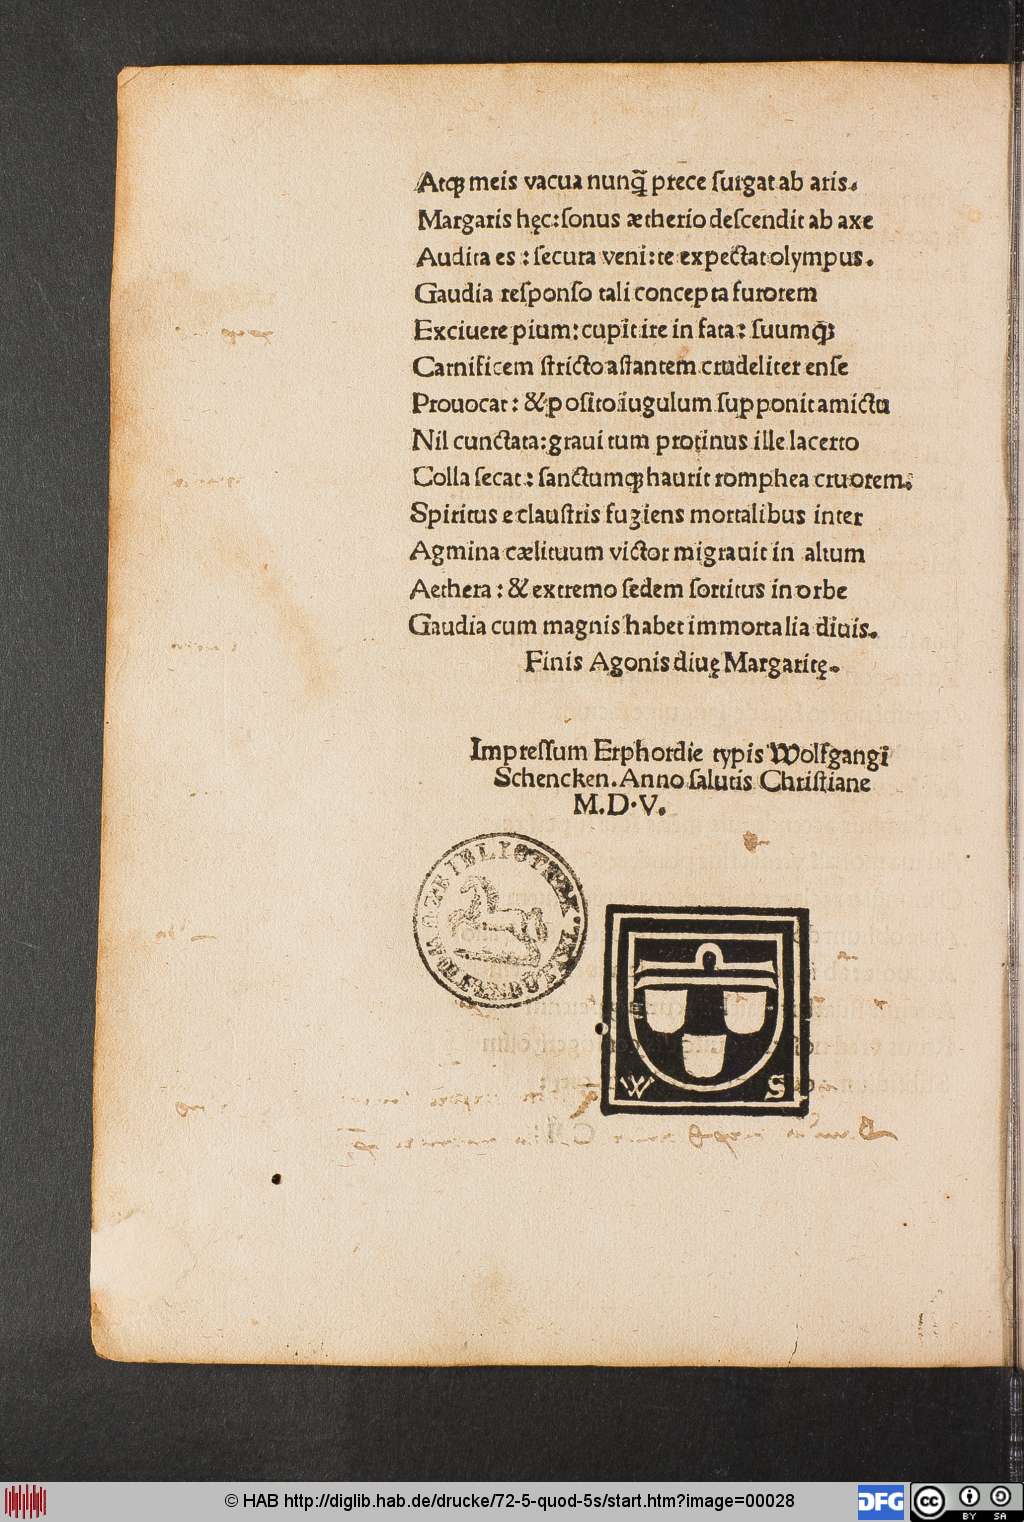 Atqꝫ meis vacua nunq̃ prece ſurgat ab aris.
Margaris hęc: ſonus ætherio deſcendit ab axe
Audita es: ſecura veni: te expectat olympus.
Gaudia reſponſo tali concepta furorem
Exciuere pium: cupit ire in fata: ſuumqꝫ
Carnificem ſtricto aſtantem crudeliter enſe
Prouocat: & poſito iugulum ſupponit amictu
Nil cunctata: graui tum protinus ille lacerto
Colla ſecat: ſanctumqꝫ haurit romphea cruorem:
Spiritus e clauſtris fugiens mortalibus inter
Agmina cælituum victor migrauit in altum
Aethera: & extremo ſedem ſortitus in orbe
Gaudia cum magnis habet immortalia diuis.
Finis Agonis diuę Margaritę.
Impreſſum Erphordie typis Wolfgangi
Schencken. Anno ſalutis Chriſtiane
M.D.V.
BIBLIOTHEK
WOLFENBÜTTEL
W S
© HAB http://diglib.hab.de/drucke/72-5-quod-5s/start.htm?image=00028
DFG
cc BY SA